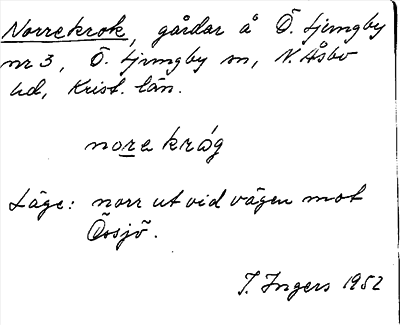 Norrekrok, gårdar å Ö. Ljungby
nr 3, Ö. Ljungby sn, N. Åsbo
hd, Krist. län.
nore kråg
Läge: norr ut vid vägen mot
Össjö.
I. Ingers 1952